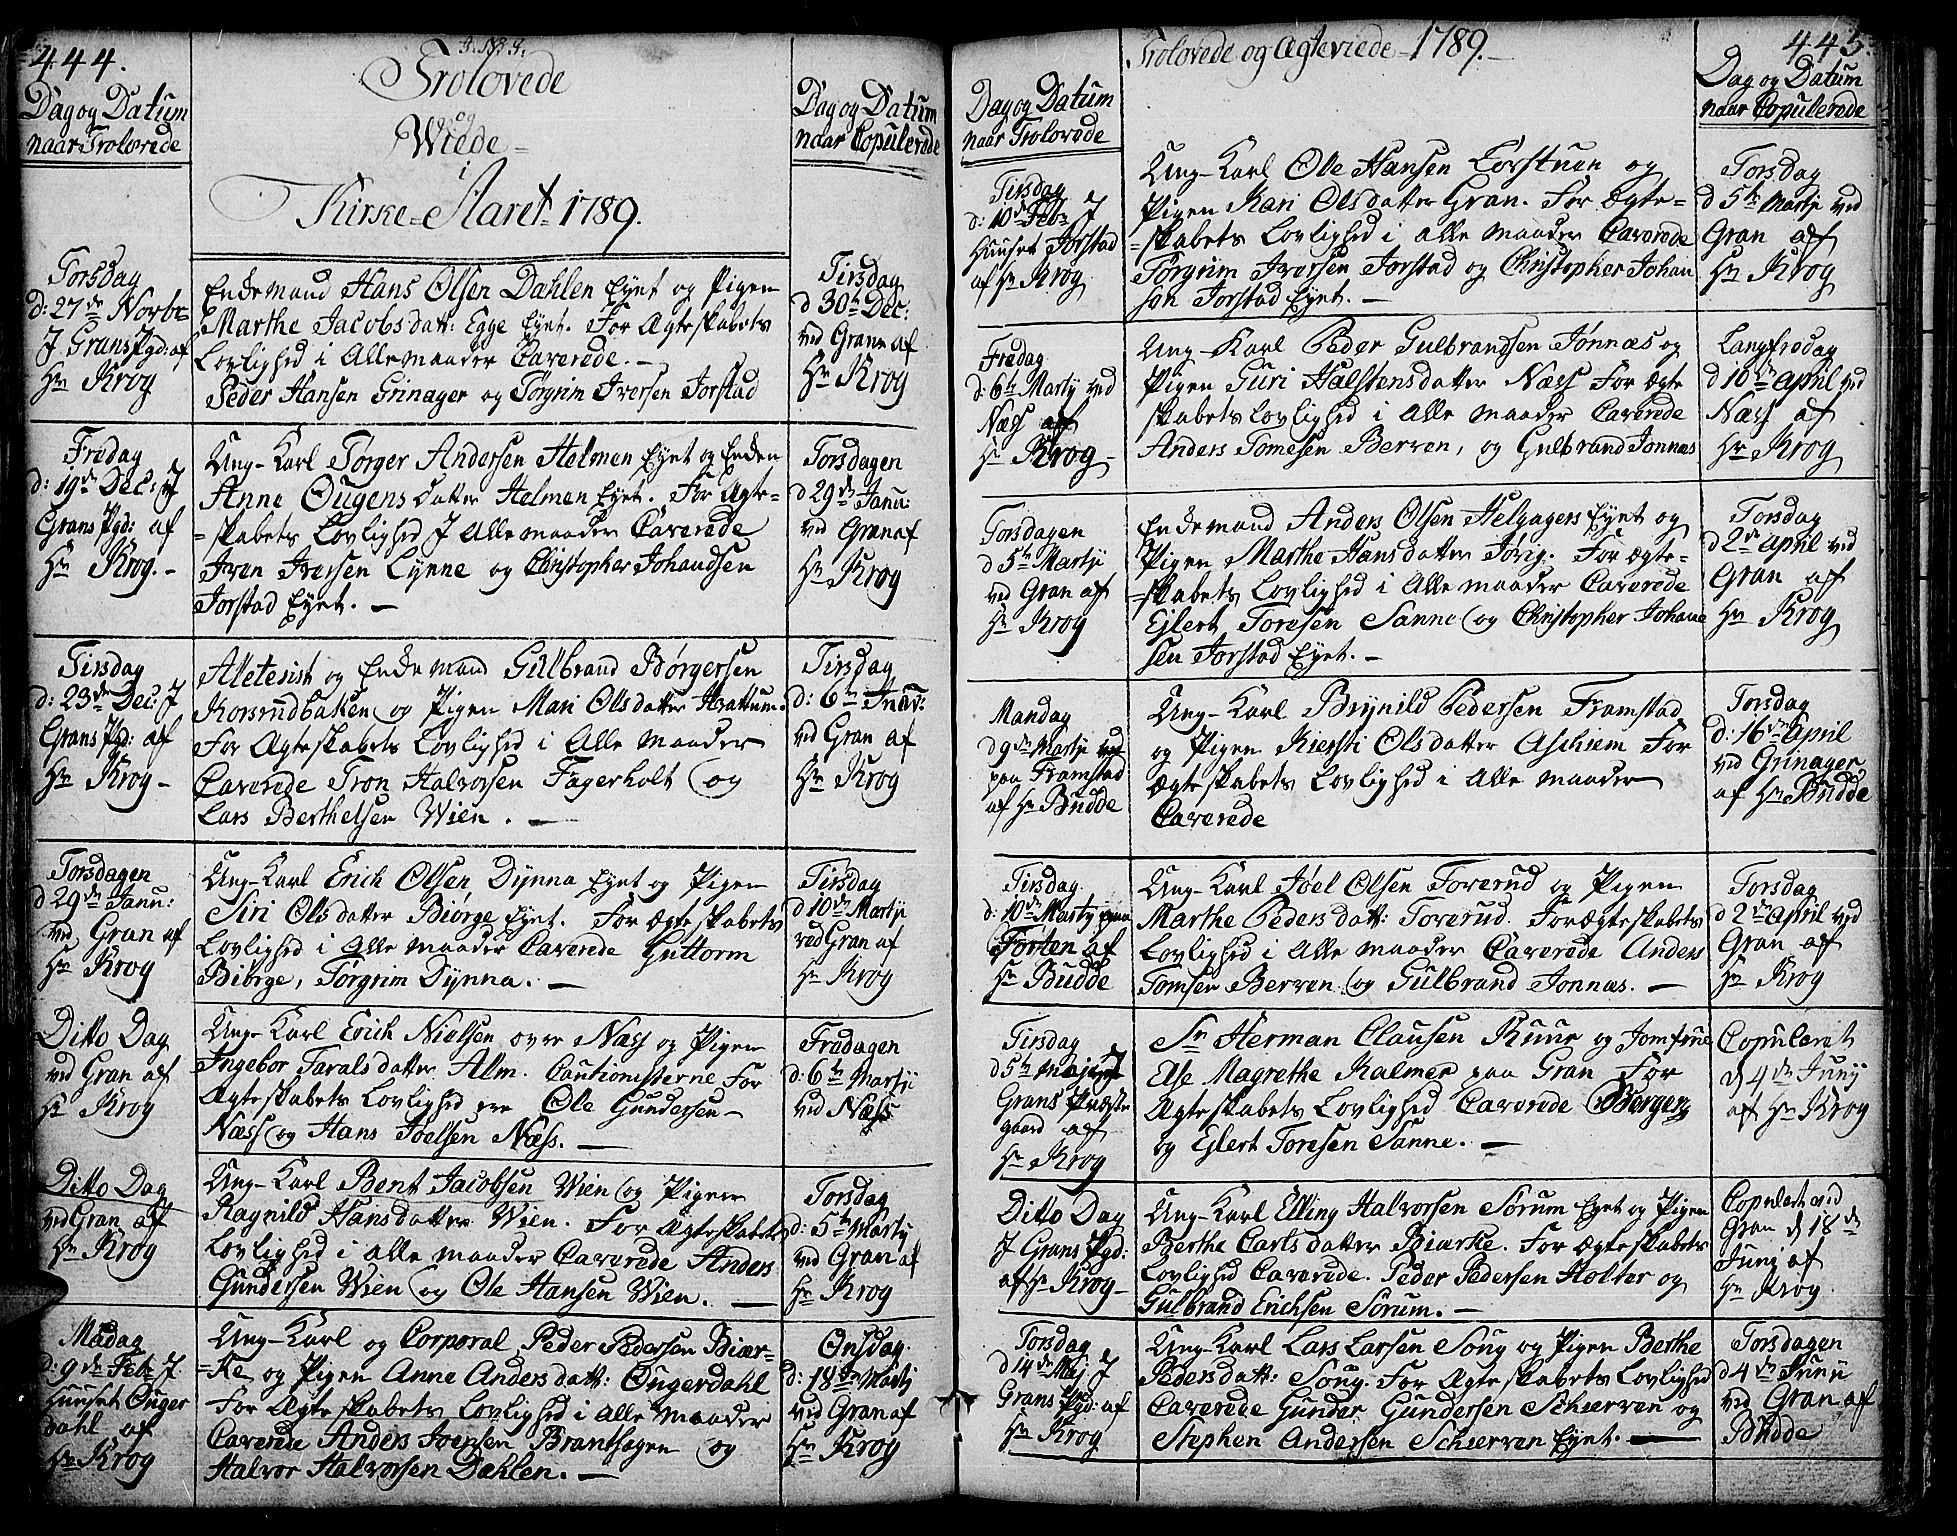 444.
J. N. J.
Trolovede
og
Wiede
i
Kirke-Aaret 1789.
Dag og Datum
naar Trolovede
Dag og Datum
naar Copulerede
Torsdag
d: 27de Novbr
J Grans Pgd: af
Hr Krog
Enkemand Hans Olsen Dahlen Eyet og Pigen
Marthe Jacobsdatt: Egge Eyet. For Ægteskabets
Lovlighed i Alle maader Caverede. —
Peder Hansen Grinager og Torgrim Iversen Jorstad
Tirsdag
d 30te Dec:
ved Gran af
Hr Krog
Fredag
d: 19de Dec: J
Grans Pgd: af
Hr Krog. -
Ung-Karl Torger Andersen Helmen Eyet og Enken
Anne Ougens datter Helmen Eyet. For Ægte-
=skabets Lovlighed J Alle maader Caverede
Iven Iversen Lynne og Christopher Johandsen
Jorstad Eyet. —
Torsdagen
d 29de Janu:
ved Gran af
Hr Krog
Tirsdag
d: 23de Dec: J
Grans Pgd: af
Hr Krog -
og Enkemand Gulbrand Børgersen
Korsrudbaken og Pigen Mari Olsdatter Hvattum.
For Ægteskabets Lovlighed i Alle maader
Caverede Tron Halvorsen Fagerholt og
Lars Berthelsen Wien. —
Tirsdag
d: 6te Janu:
ved Gran af
Hr Krog
Torsdagen
d 29de Janu:
ved Gran af
Hr Krog
Ung-Karl Erich Olsen Dynna Eyet og Pigen
Siri Olsdatter Biørge Eyet. For Ægteskabets
Lovlighed i Alle maader Caverede Guttorm
Biørge, Torgrim Dynna. —
Tirsdag
d 10de Martji
ved Gran af
Hr Krog
Ditto Dag
ved Gran af
Hr Krog
Ung-Karl Erich Nielsen øvre Næss og Pigen
Ingebor Taralsdatter Alm. Cautionisterne For
Ægteskabets Lovlighed ere Ole Gundersen
Næss og Hans Joelsen Næss. —
Fredagen
d: 6te Martji
ved Næss
Ditto Dag
ved Gran af
Hr Krog
Ung-Karl Bent Jacobsen Wien og Pigen
Ragnild Hansdatter Wien. For Ægteskabets
Lovlighed i alle maader Caverede Anders
Gundersen Wien og Ole Hansen Wien. —
Torsdag
d: 5te Marty
ved Gran af
Hr Krog
Madag
d: 9de Feb: J
Huuset Ouger
dahl af
Hr Krog
Ung-Karl og Corporal Peder Pedersen Biær-
=ke og Pigen Anne Andersdatt: Ougerdahl
For Ægteskabets Lovlighed i Alle maader
Caverede Anders Iversen Branthagen og
Halvor Halvorsen Dæhlen. —
Onsdag
d: 18de Martj
ved Gran af
Hr Krog
Trolovede og Ægteviede 1789. —
445.
Dag og Datum
naar Trolovede
Dag og Datum
naar Copulerede
Tirsdag
d: 10de Feb: J
Huuset Jorstad
af Hr Krog
Ung-Karl Ole Hansen Lorstuen og
Pigen Kari Olsdatter Gran. For Ægte=
=skabets Lovlighed i alle maader Caverede
Torgrim Iversen Jorstad og Christopher Johan
sen Jorstad Eyet. —
Torsdag
d 5te Martji ved
Gran af
Hr Krog
Fredag
d: 6te Martji ved
Næss af
Hr Krog
Ung-Karl Peder Gulbrandsen Jønnæs og
Pigen Guri Halstensdatter Næss For Ægte
skabets Lovlighed i Alle maader Caverede
Anders Tomesen Berven, og Gulbrand Jonnæs
Langfredag
d 10de April ved
Næss af
Hr Krog
Torsdagen
d 5te Martji
ved Gran af
Hr Krog
Enkemand Anders Olsen Helgagers Eyet og
Pigen Marthe Hansdatter Jørig. For Ægte-
=skabets Lovlighed i Alle maader Caverede
Ejlert Toresen Sanne og Christopher Johane
sen Jorstad Eyet. —
Torsdag
d 2de April ved
Gran af
Hr Krog
Mandag
d 9de Martji ved
paa Framstad
af Hr Budde
Ung-Karl Brynild Pedersen Framstad
og Pigen Kiersti Olsdatter Aschiem For
Ægteskabets Lovlighed i Alle maader
Caverede
Torsdag
d: 16de April
ved Grinager
af Hr Budde
Tirsdag
d: 10de Marty paa
Forten af
Hr Budde
Ung-Karl Joel Olsen Toverud og Pigen
Marthe Pedersdatt: Toverud. For Ægteskabets
Lovlighed i Alle maader Caverede Anders
Tomsen Berven og Gulbrand Jonnæs. —
Torsdag
d 2de April ved
Gran af
Hr Krog
Tirsdag
d 5te Maj J
Grans Præste
gaard af
Hr Krog
Sr Herman Clausen Ruur og Jomfrue
Else Magrethe Kalmer paa Gran For
Ægteskabets Lovlighed Caverede Berger
og Ejlert Toresen Sanne. —
Copuleret
d 4de Junij
af Hr Krog
Ditto Dag
J Grans Pgd:
af Hr Krog -
Ung-Karl Elling Halvorsen Sørum Eyet og Pigen
Berthe Carlsdatter Biærke. For Ægteskabets
Lovlighed Caverede. Peder Pedersen Holter og
Gulbrand Erichsen Sørum. —
Copulert ved
Gran d 18de
Junj af
Hr Krog.
Torsdag
d 14de Maj J
Grans Pgd: af
Hr Krog
Ung-Karl Lars Larsen Soug og Pigen Berthe
Pedersdatt: Soug. For Ægteskabets Lovlighed
Caverede Gunder Gundersen Schierven og
Stephen Andersen Schierven Eyet. —
Torsdagen
d 4de Junii
ved Gran af
Budde